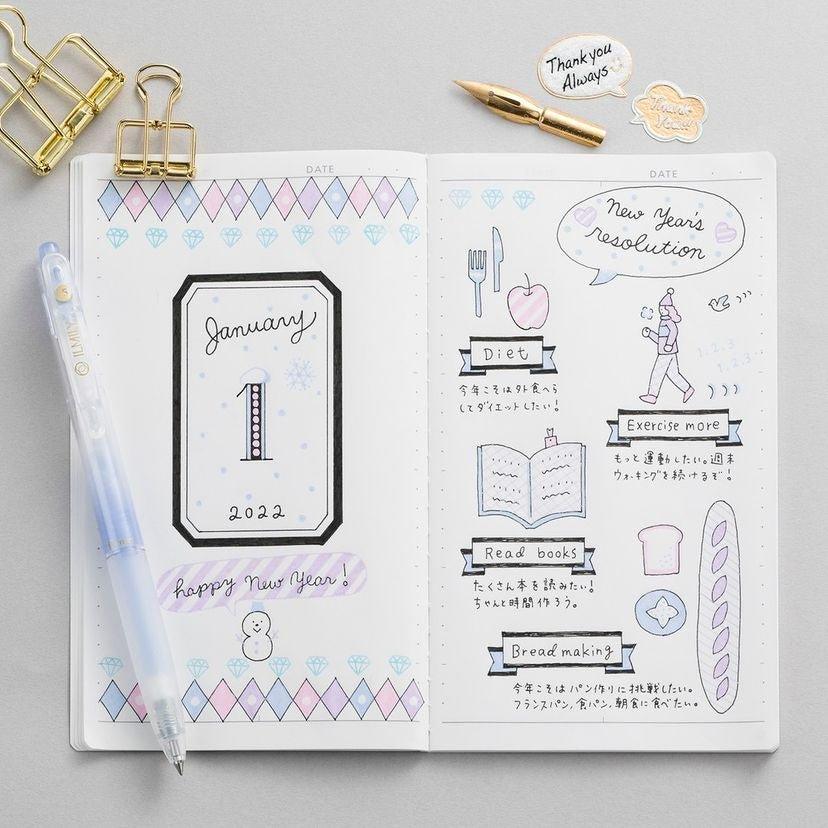 Thank you
Always
Thank
You
DATE
January
1
2022
happy New Year!
ILMILY
DATE
New Year's
resolution
Diet
今年こそは外食へら
してダイエットしたい!
1.2.3
1.2.3..
Exercise more
もっと運動したい。週末
ウォーキングを続けるぞ!
Read books
たくさん本を読みたい!
ちゃんと時間作ろう。
Bread making
今年こそはパン作りに挑戦したい。
フランスパン,食パン,朝食に食べたい。